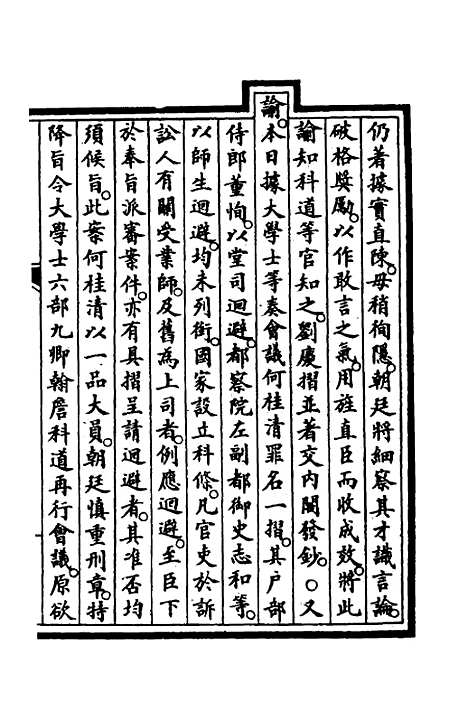 仍著據實直陳。毋稍徇隱。朝廷將細察其才識言論。
破格奬勵。以作敢言之氣。用旌直臣而收成效。將此
諭知科道等官知之。劉慶摺並著交內閣發鈔。○又
諭。本日據大學士等奏會議何桂清罪名一摺。其戶部
侍郎董恂。以堂司迴避。都察院左副都御史志和等。
以師生迴避。均未列銜。國家設立科條。凡官吏於訴
訟人有關受業師。及舊為上司者。例應迴避。至臣下
於奉旨派審案件。亦有具摺呈請迴避者。其准否均
須候旨。此案何桂清以一品大員。朝廷慎重刑章。特
降旨令大學士六部九卿翰詹科道再行會議。原欲